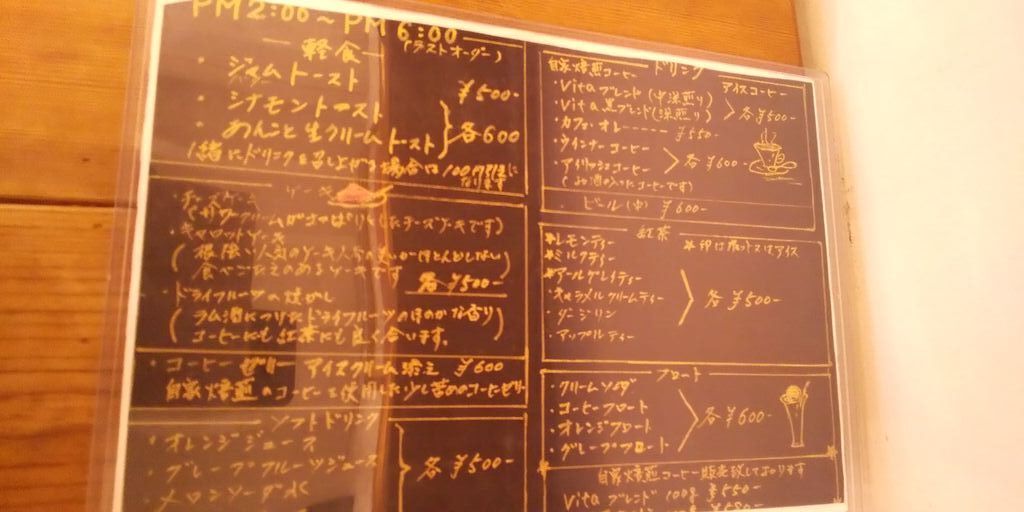 PM2:00～PM6:00
(ラストオーダー)
軽食
・ジャムトースト ¥500-
・シナモントースト
・あんこと生クリームトースト
各600
一緒にドリンクを召し上がる場合は100円引きになります
ケーキ
・チーズケーキ
(サワークリームがさっぱりしたチーズケーキです)
・キャロットケーキ
(根強い人気のケーキ
食べごたえのあるケーキです)
各¥500-
・ドライフルーツの
(ラム酒につけたドライフルーツのほのかな香り
コーヒーにも紅茶にも良く合います。)
・コーヒーゼリー アイスクリーム添え ¥600
自家焙煎のコーヒーを使用した少し苦めのコーヒーゼリー
ソフトドリンク
・オレンジジュース
・グレープフルーツジュース
・メロンソーダ水
各¥500-
ドリンク
自家焙煎コーヒー
アイスコーヒー
・Vitaブレンド(中深煎り)
・Vita黒ブレンド(深煎り)
各¥500-
・カフェ・オレ----- ¥550-
・ウインナーコーヒー
・アイリッシュコーヒー
各¥600-
(お酒の入ったコーヒーです)
・ビール(中) ¥600-
紅茶
※印はホット又はアイス
※レモンティー
※ミルクティー
※アールグレイティー
・キャラメルクリームティー
・ダージリン
・アップルティー
各¥500-
フロート
・クリームソーダ
・コーヒーフロート
・オレンジフロート
・グレープフロート
各¥600-
自家焙煎コーヒー販売致しております
Vitaブレンド 100g ¥550-